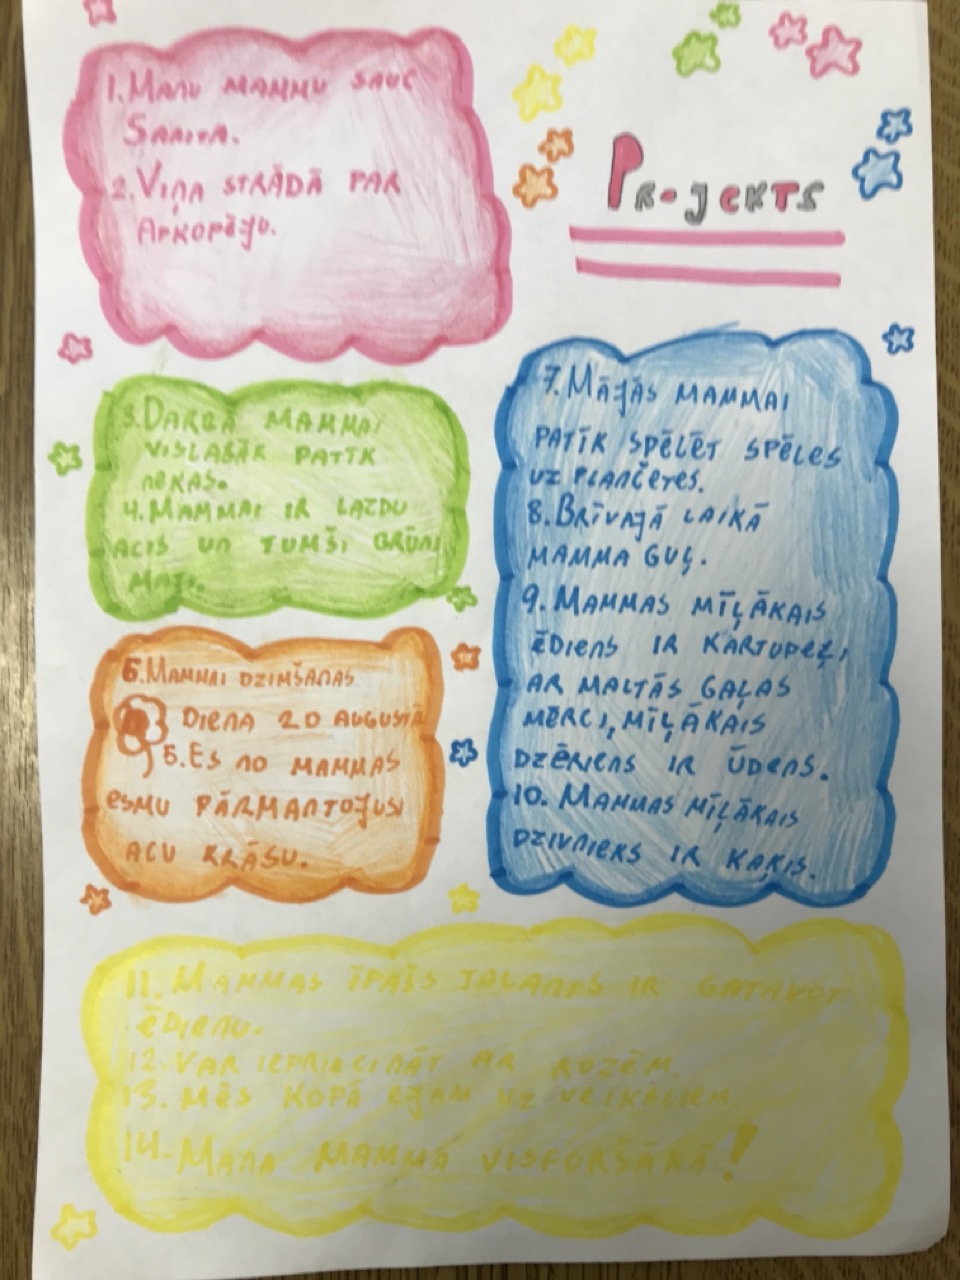 Projekts
1. Manu mammu sauc
Sanita.
2. Viņa strādā par
apkopēju.
3. Darbā mammai
vislašāk patīk
nekas.
4. Mammai ir lazdu
acis un tumši brūni
mati.
6. Mammai dzimšanas
diena 20 augustā
5. Es no mammas
esmu pārmantojusi
acu krāsu.
7. Mājās mammai
patīk spēlēt spēles
uz plančetes.
8. Brīvajā laikā
mamma guļ.
9. Mammas mīļākais
ēdiens ir kartupeļi
ar maltās gaļas
mērci, mīļākais
dzēriens ir ūdens.
10. Mammas mīļākais
dzīvnieks ir kaķis.
11. Mammas īpašs talants ir gatavot
ēdienu.
12. Var iepriecināt ar rozēm.
13. Mēs kopā ejam uz veikaliem.
14. Mana mamma visforšākā!